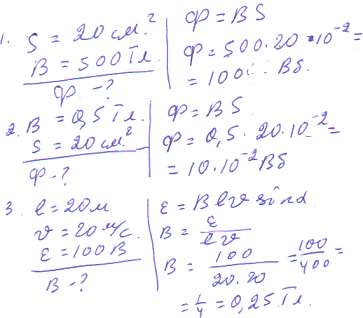 1. S = 20 см.²
B = 500 Тл.
Ф - ?
Ф = B S
Ф = 500 · 20 · 10⁻² =
= 100 Вб.
2. B = 0,5 Тл.
S = 20 см.²
Ф - ?
Ф = B S
Ф = 0,5 · 20 · 10⁻² =
= 10 · 10⁻² Вб
3. l = 20 м
v = 20 м/с.
ε = 100 В
B - ?
ε = B l v sin α
B = ε / l v
B = 100 / 20 · 20 = 100 / 400 =
= 1/4 = 0,25 Тл.